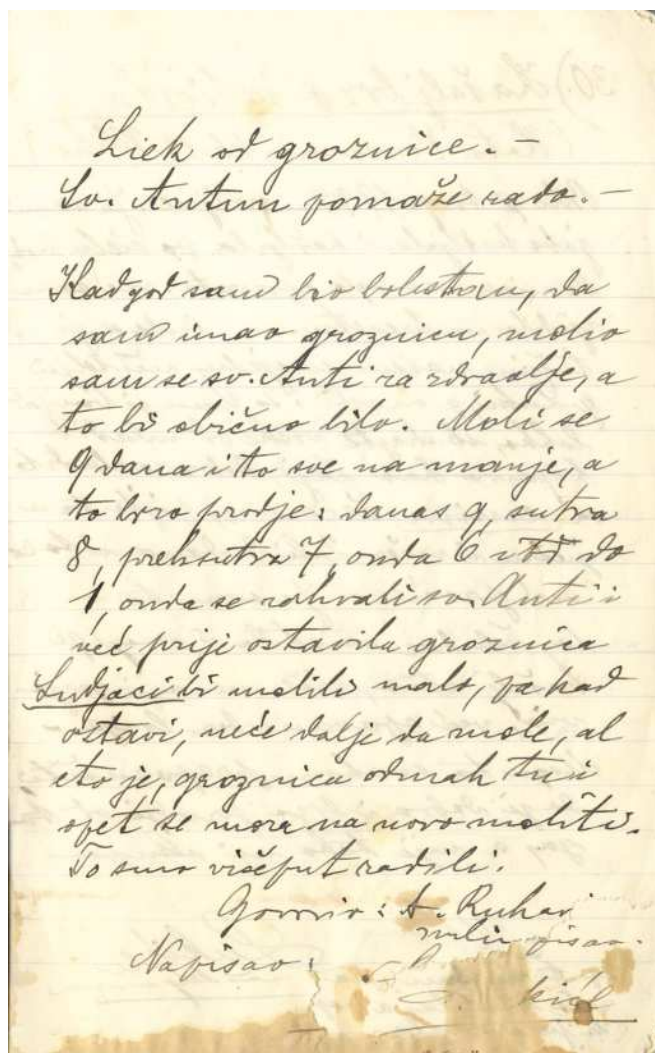 Liek od groznice. —
Sv. Antun pomaže rado. —
Kadgod sam bio bolestan, da
sam imao groznicu, molio
sam se sv. Anti za zdravlje, a
to bi obično bilo. Moli se
9 dana i to sve na manje, a
to brzo prodje: danas 9, sutra
8, preksutra 7, onda 6 itd do
1, onda se zahvali sv. Anti i
već prije ostavila groznica
Ludjaci bi molili malo, pa kad
ostavi, neće dalje da mole, al
eto je, groznica odmah tu i
opet se mora na novo moliti.
To smo višeput radili.
Govorio: A.
pisao.
Napisao: